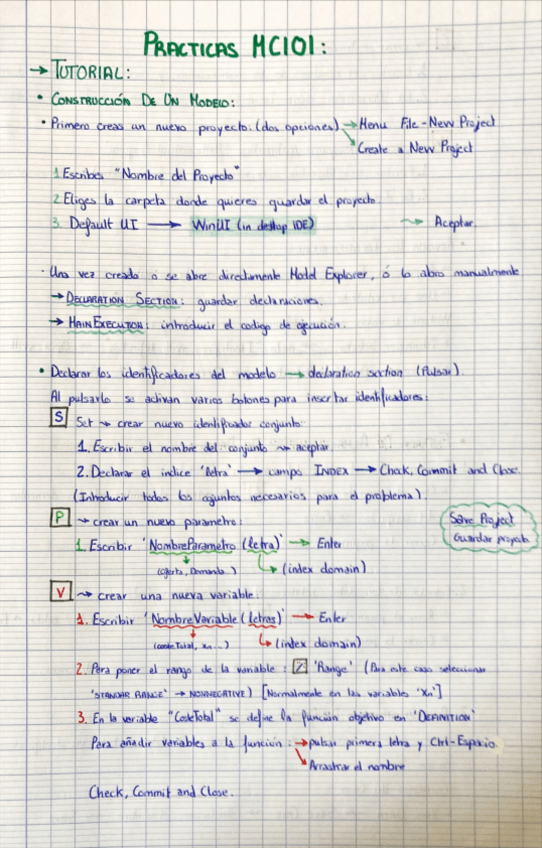 PRACTICAS MC1O1:
→ TUTORIAL:
• CONSTRUCCIÓN DE UN MODELO:
• Primero creas un nuevo proyecto. (dos opciones) → Menu File - New Project
Create a New Project
1 Escribes "Nombre del Proyecto"
2 Eliges la carpeta donde quieres guardar el proyecto.
3. Default UI → WinUI (in desktop IDE) → Aceptar.
• Una vez creado o se abre directamente Model Explorer, ó lo abro manualmente
→ DECLARATION SECTION: guardar declaraciones.
→ MAIN EXECUTION: introducir el codigo de ejecución.
• Declarar los identificadores del modelo → declaration section (Pulsar).
Al pulsarlo se activan varios botones para insertar identificadores:
S Set → crear nuevo identificador conjunto
1. Escribir el nombre del conjunto → aceptar.
2. Declarar el indice 'letra' → campo INDEX → Check, Commit and Close.
(Introducir todos los conjuntos necesarios para el problema).
P → crear un nuevo parametro:
Save Project
Guardar proyecto
1. Escribir 'NombreParametro (letra)' → Enter
(Oferta, Demanda...) → (index domain)
V → crear una nueva variable.
1. Escribir 'NombreVariable (letras)' → Enter
(costeTotal, xn...) → (index domain)
2. Para poner el rango de la variable: 'Range' (Para este caso seleccionar
'STANDAR RANGE' → NONNEGATIVE) [Normalmente en las variables 'Xn']
3. En la variable "CosteTotal" se define la función objetivo en 'DEFINITION'
Para añadir variables a la función: → pulsar primera letra y Ctrl-Espacio.
Arrastrar el nombre
Check, Commit and Close.